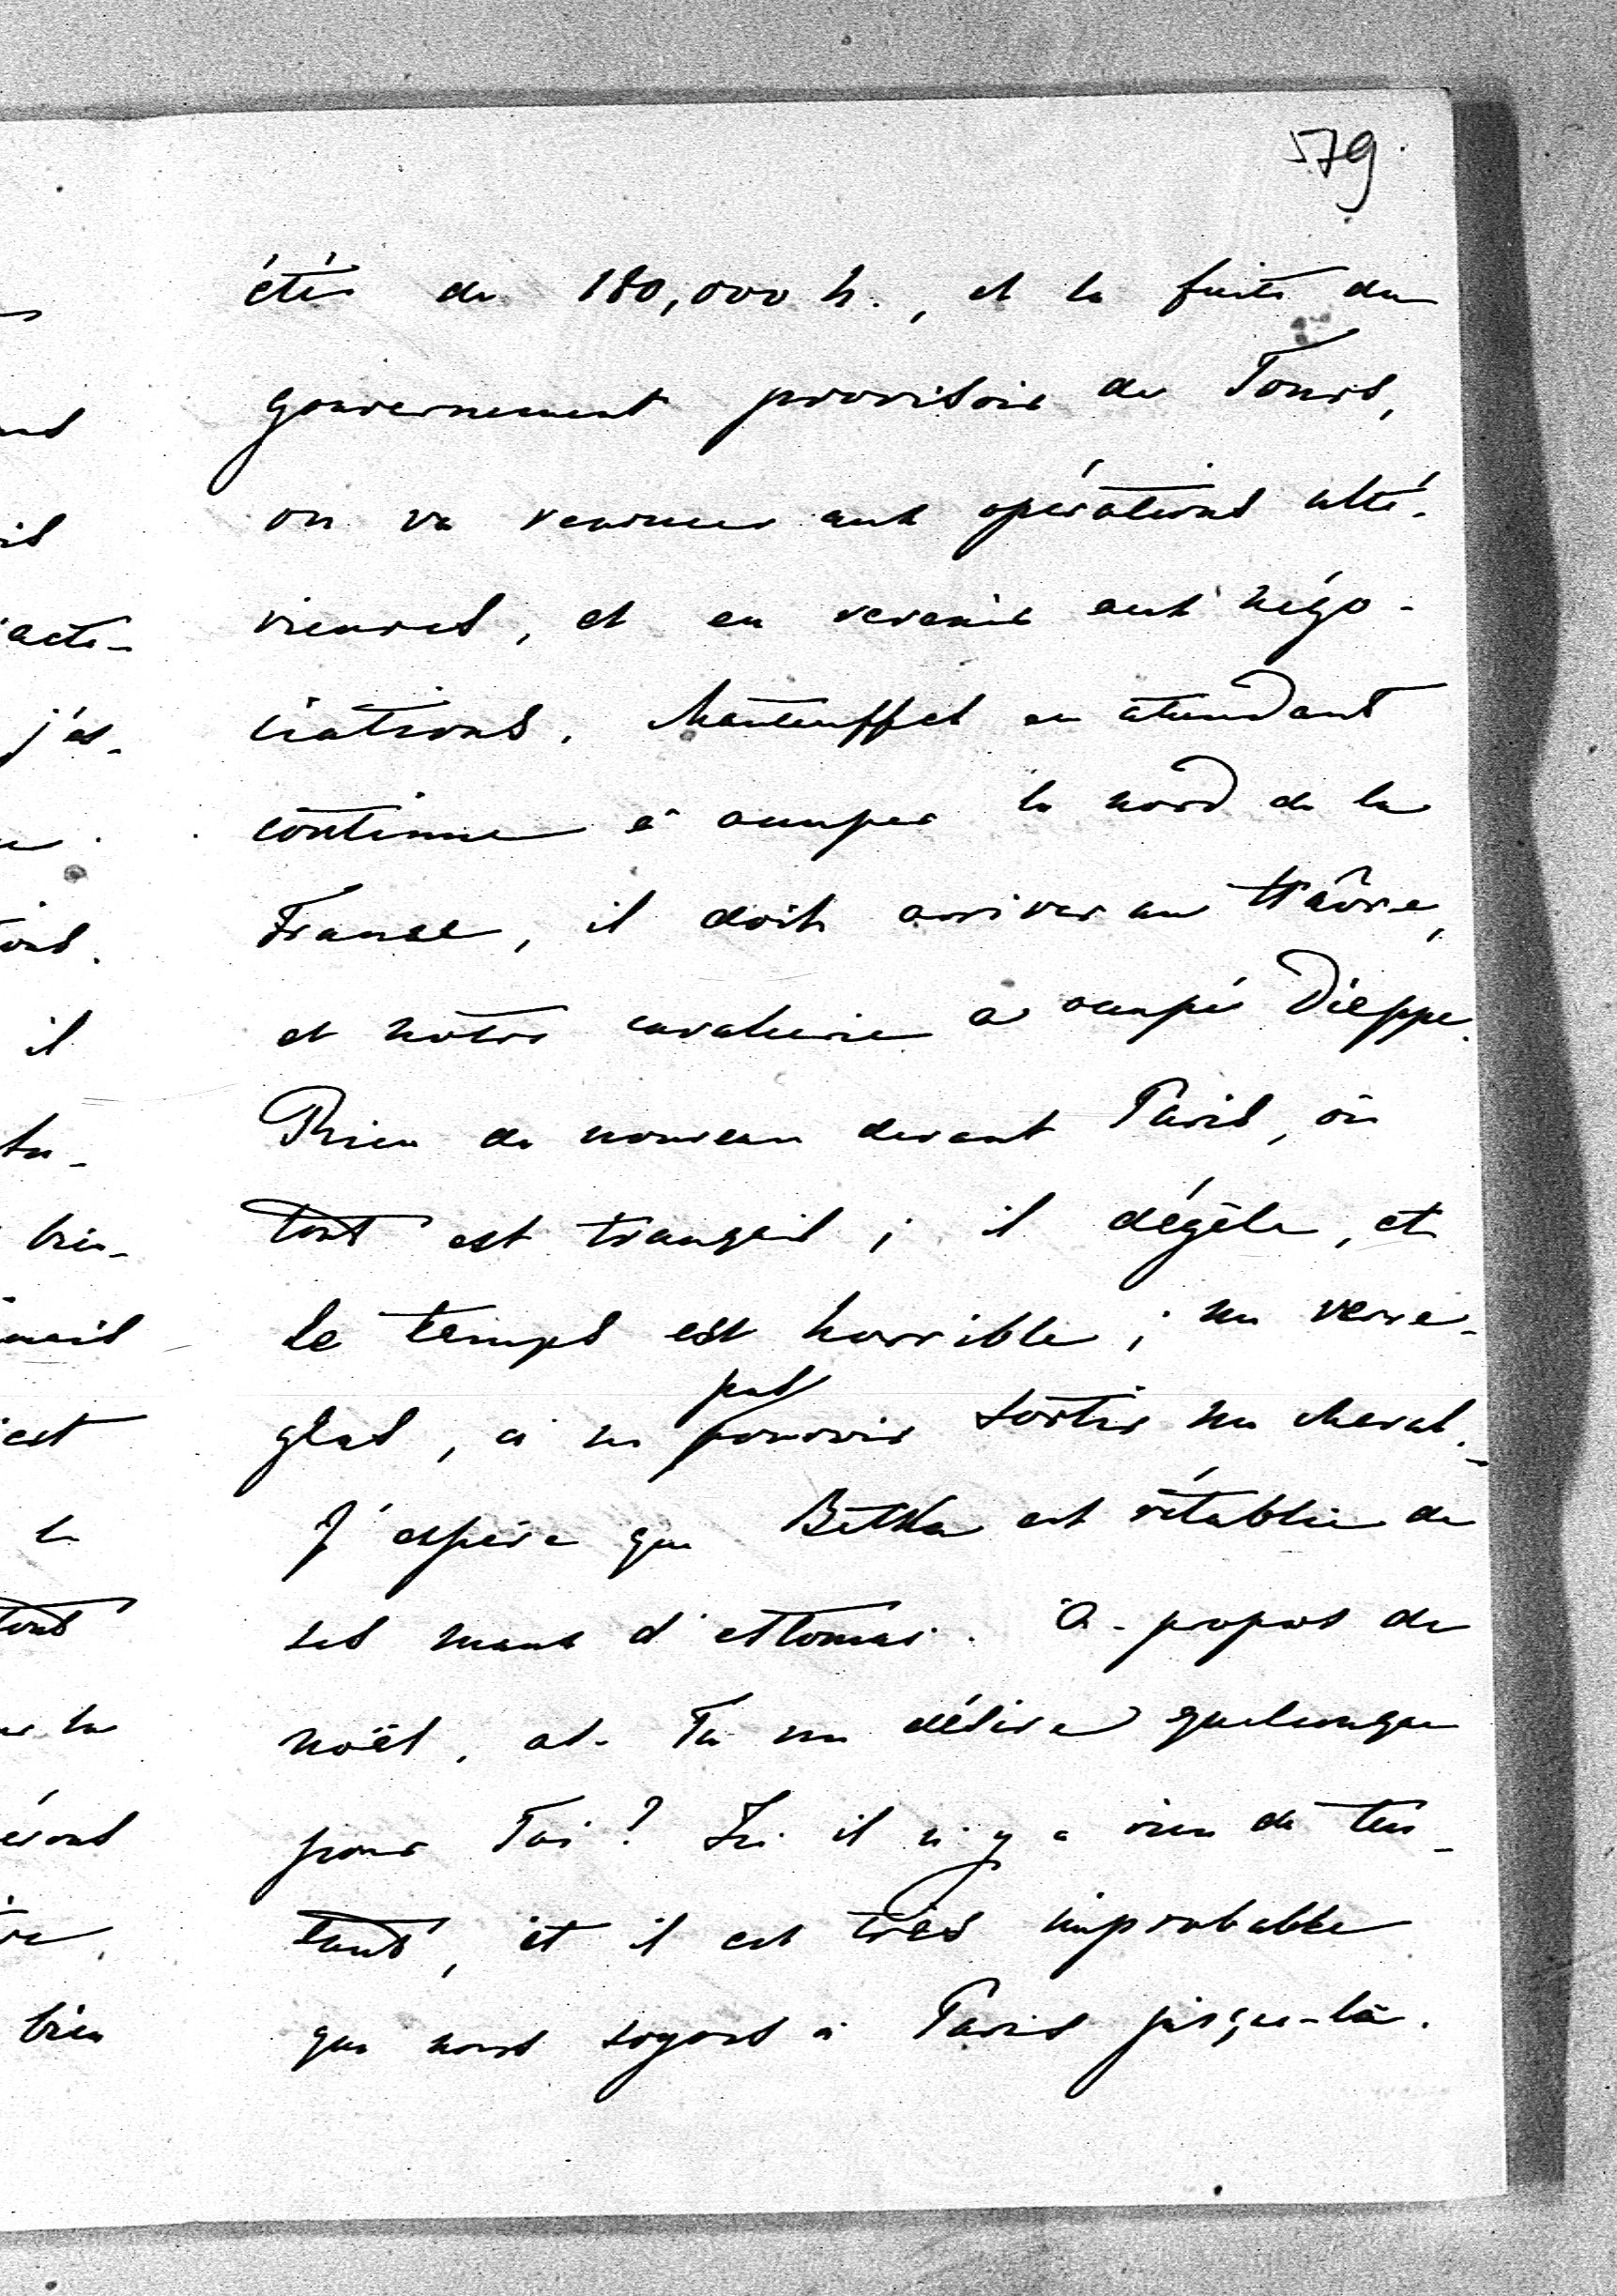 579.
été de 180,000 h., et la fuite du
gouvernement provisoire de Tours,
on va renoncer aux opérations ulté-
rieures, et en revenir aux négo-
ciations. Manteuffel en attendant
continue à occuper le nord de la
France, il doit arriver au Hâvre,
et nôtre cavalerie a occupé Dieppe.
Rien de nouveau devant Paris, où
tout est tranquil ; il dégèle, et
le temps est horrible ; un verre-
glas, à ne pas pouvoir sortir un cheval. -
J'espère que Betka est rétablie de
ses maux d'estomac. A-propos de
noël, as-Tu un désire quelconque
pour Toi? Ici il n'y a rien de ten-
tant, et il est très improbable
que nous soyons à Paris jusque-là.
acte-
j'es-
il
bien-
mais
est
tout
bien